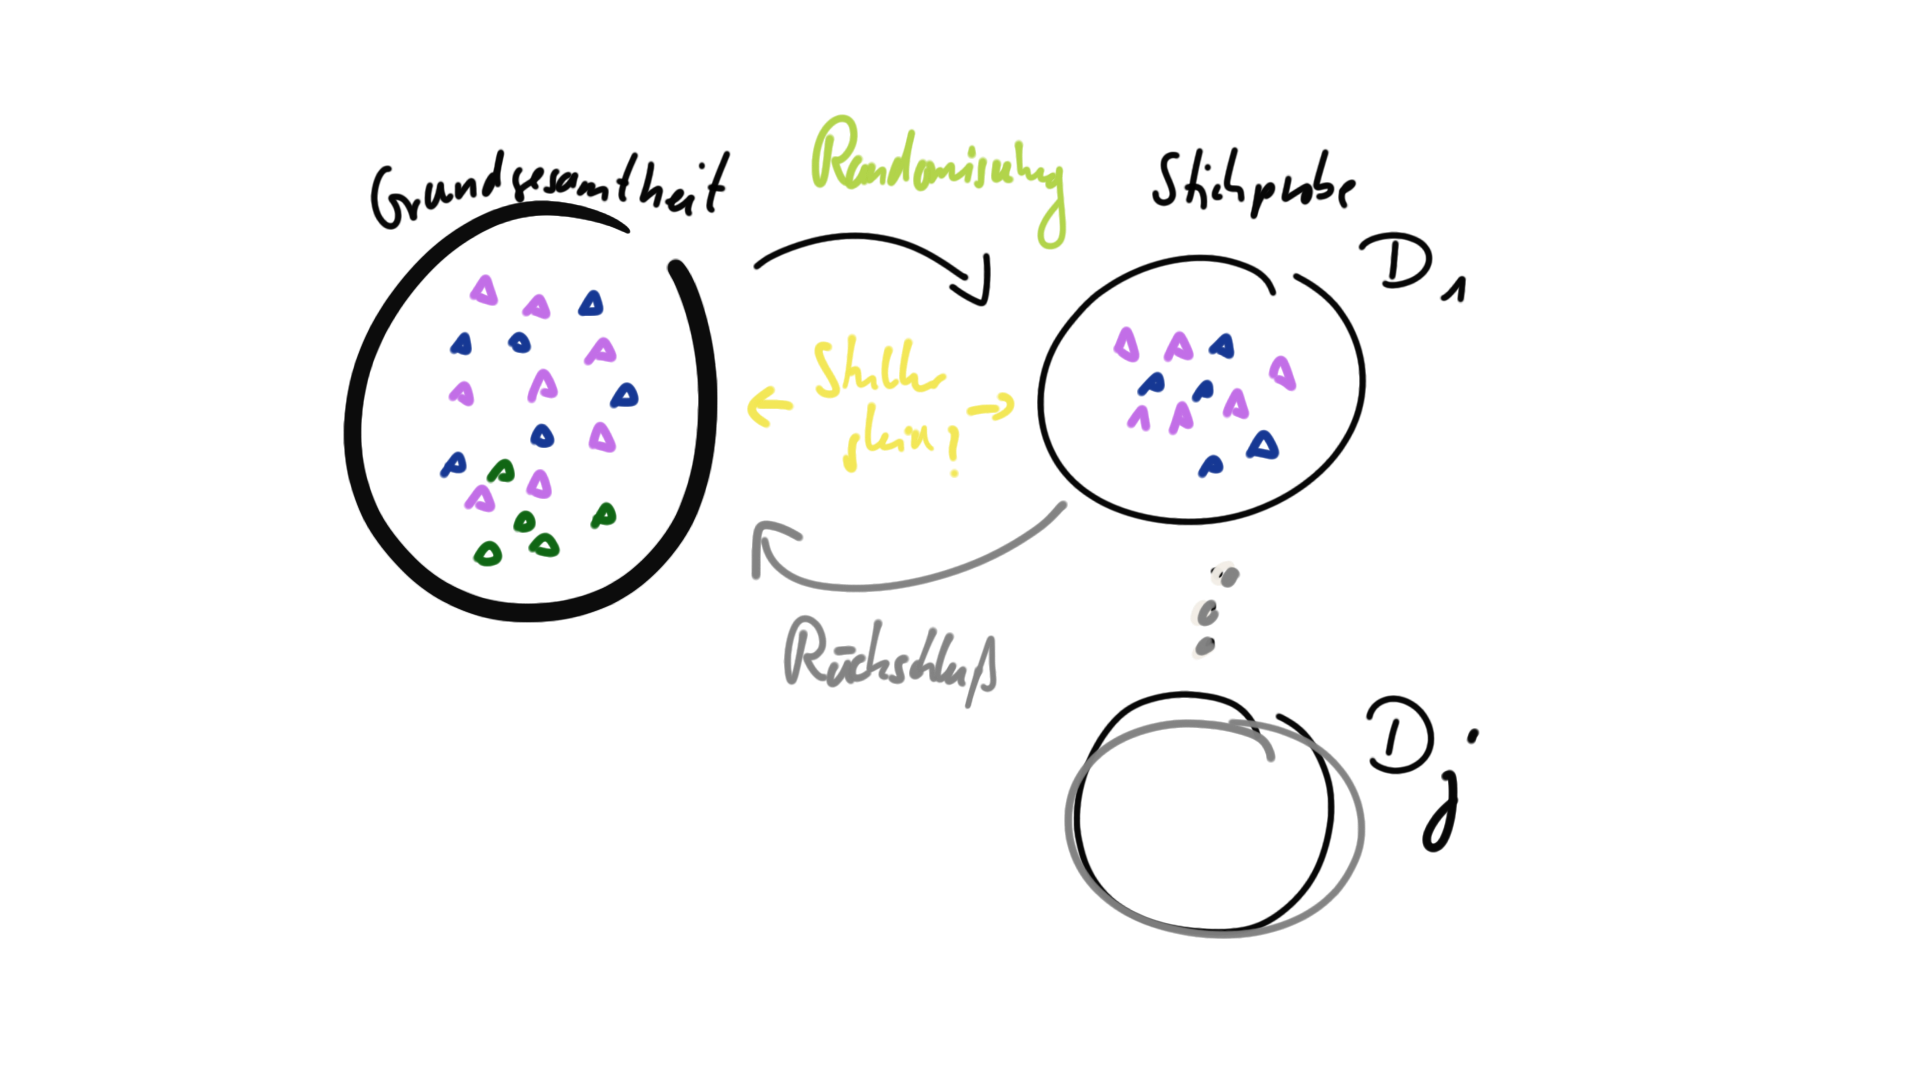 Grundgesamtheit
Randomisierung
Stichprobe
D1
gleich?
Rückschluß
Dj